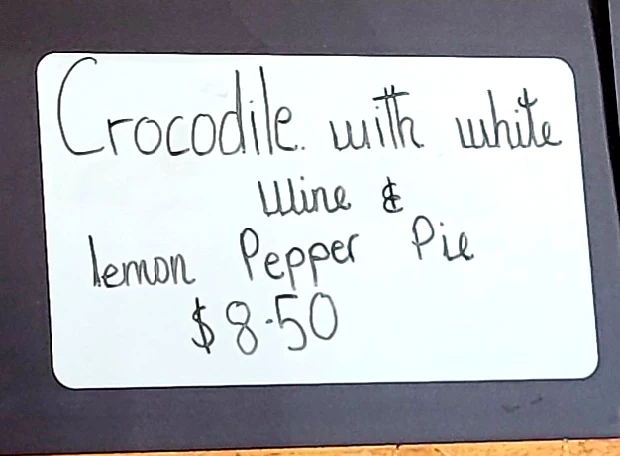 Crocodile. with white
Wine &
lemon Pepper Pie
$8.50